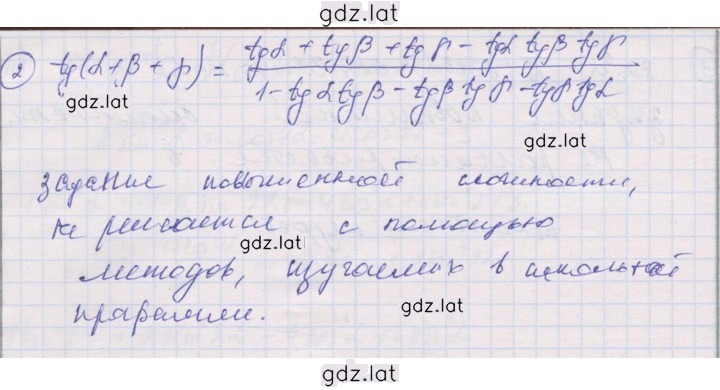 gdz.lat
2 tg(α+β+γ) = (tgα + tgβ + tgγ - tgα tgβ tgγ) / (1 - tgα tgβ - tgβ tgγ - tgγ tgα)
gdz.lat
gdz.lat
задание повышенной сложности,
не решается с помощью
gdz.lat
методов, изучаемых в школьной
gdz.lat
программе.
gdz.lat